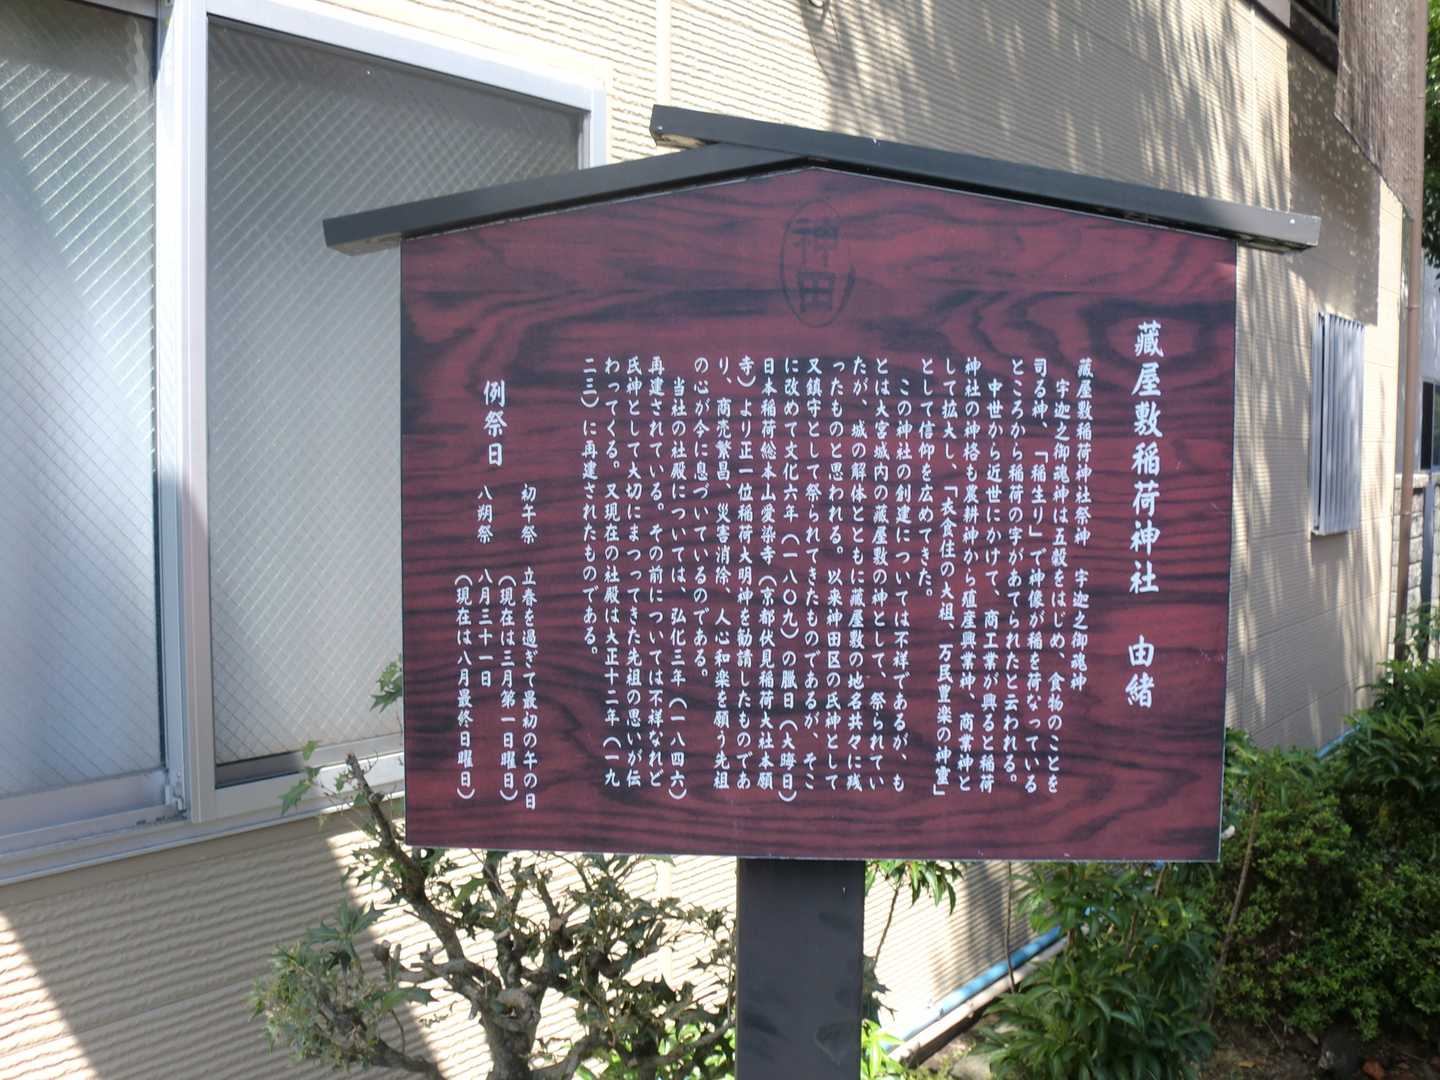 神田
蔵屋敷稲荷神社　由緒
蔵屋敷稲荷神社祭神　宇迦之御魂神
宇迦之御魂神は五穀をはじめ、食物のことを
司る神、「稲生り」で神像が稲を荷なっている
ところから稲荷の字があてられたと云われる。
中世から近世にかけて、商工業が興ると稲荷
神社の神格も農耕神から殖産興業神、商業神と
して拡大し、「衣食住の大祖、万民豊楽の神霊」
として信仰を広めてきた。
この神社の創建については不祥であるが、も
とは大宮城内の蔵屋敷の神として、祭られてい
たが、城の解体とともに蔵屋敷の地名共々に残
ったものと思われる。以来神田区の氏神として
又鎮守として祭られてきたものであるが、そこ
に改めて文化六年（一八〇九）の臘日（大晦日）
日本稲荷総本山愛染寺（京都伏見稲荷大社本願
寺）より正一位稲荷大明神を勧請したものであ
り、商売繁昌、災害消除、人心和楽を願う先祖
の心が今に息づいているのである。
当社の社殿については、弘化三年（一八四六）
再建されている。その前については不祥なれど
氏神として大切にまつってきた先祖の思いが伝
わってくる。又現在の社殿は大正十二年（一九
二三）に再建されたものである。
例祭日
初午祭　立春を過ぎて最初の午の日
（現在は三月第一日曜日）
八朔祭　八月三十一日
（現在は八月最終日曜日）